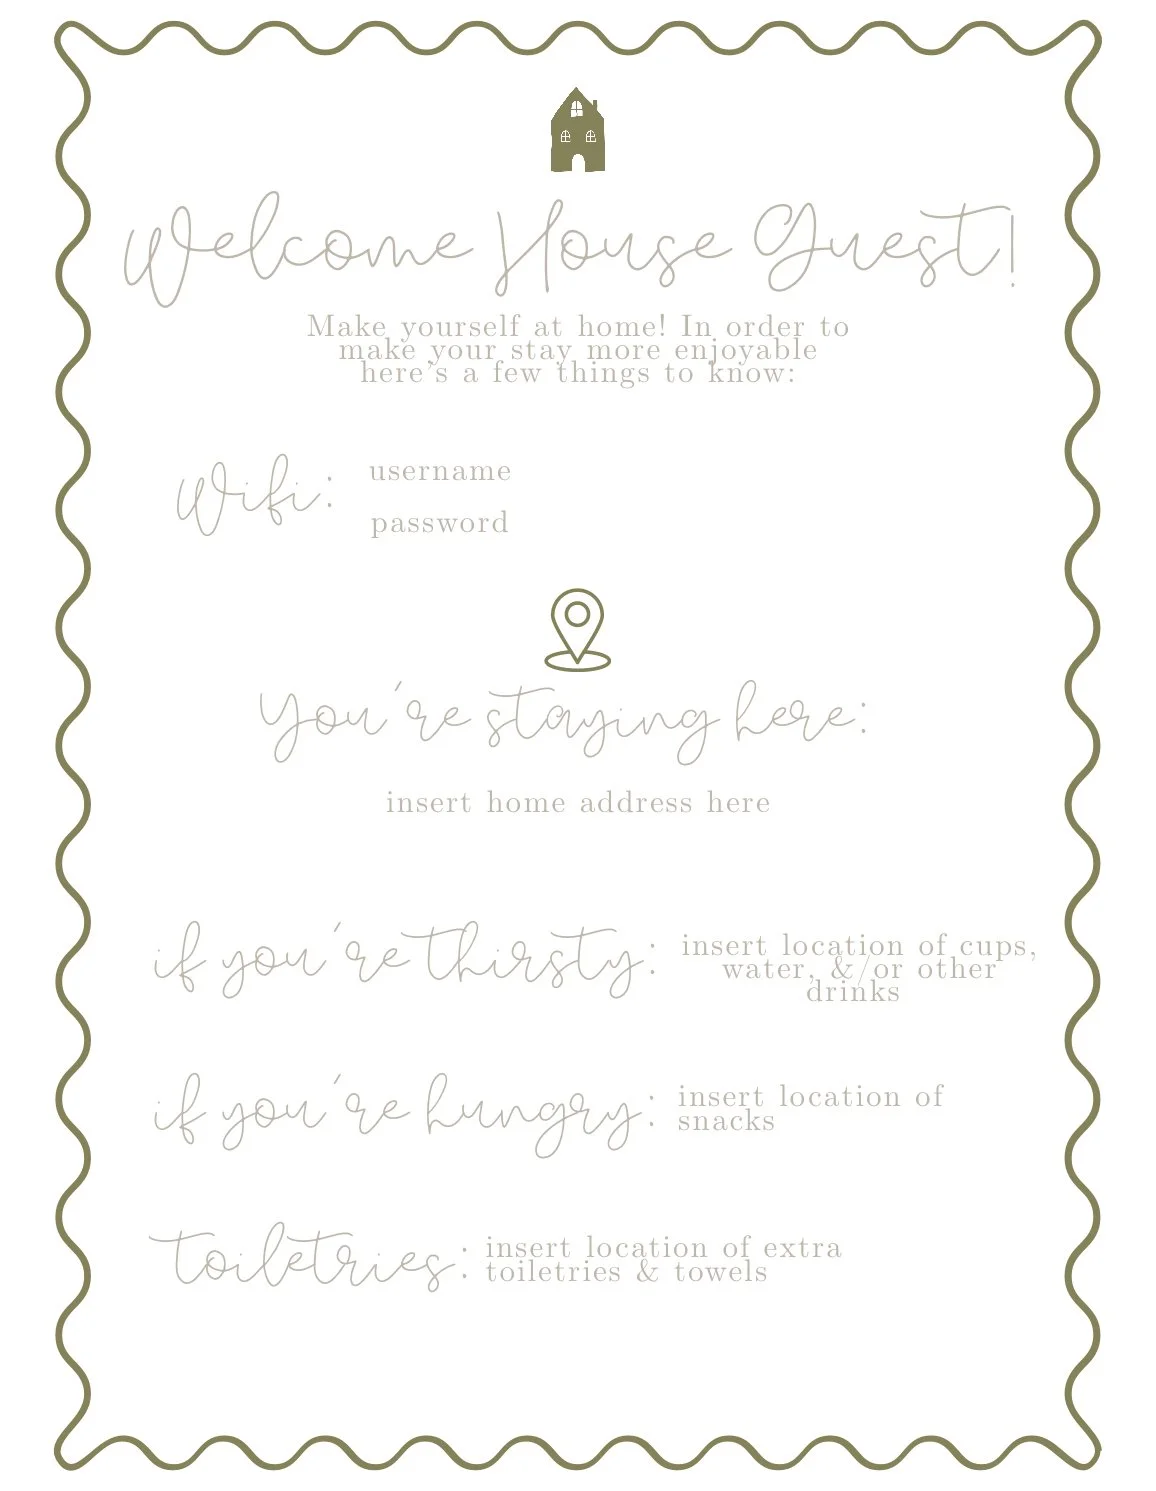 Welcome House Guest!
Make yourself at home! In order to
make your stay more enjoyable
here's a few things to know:
Wifi:
username
password
You're staying here:
insert home address here
if you're thirsty:
insert location of cups,
water, &/or other
drinks
if you're hungry:
insert location of
snacks
toiletries:
insert location of extra
toiletries & towels